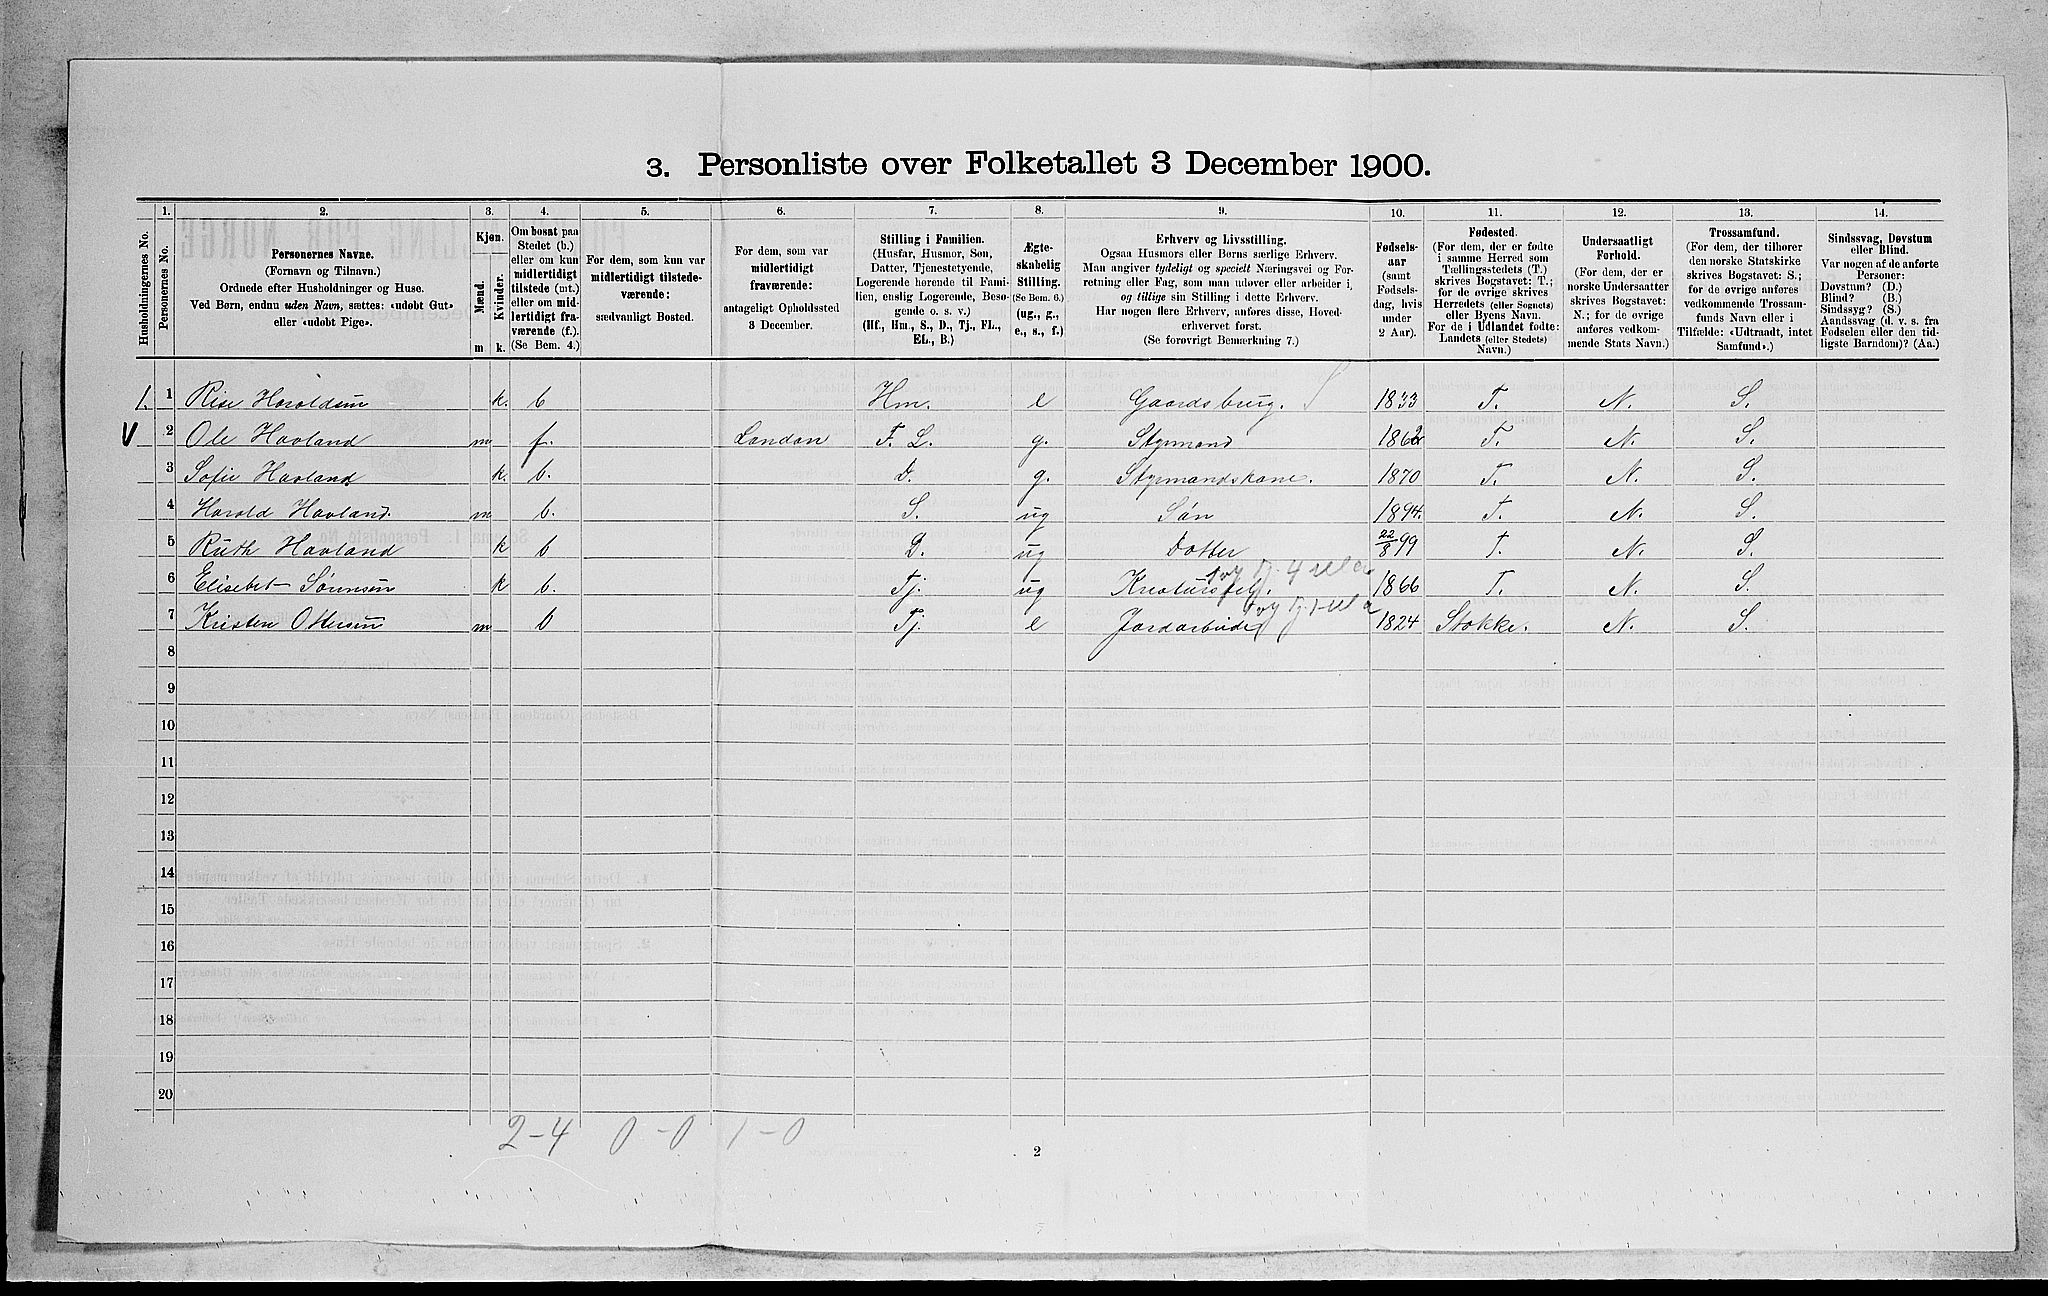 3. Personliste over Folketallet 3 December 1900.
1. 2. 3. 4. 5. 6. 7. 8. 9. 10. 11. 12. 13. 14.
Husholdningernes No.
Personernes No.
Personernes Navne.
(Fornavn og Tilnavn.)
Ordnede efter Husholdninger og Huse.
Ved Børn, endnu uden Navn, sættes: «udøbt Gut»
eller «udøbt Pige».
Kjøn.
Mænd.
Kvinder.
m k.
Om bosat paa
Stedet (b.)
eller om kun
midlertidigt
tilstede (mt.)
eller om mid-
lertidigt fra-
værende (f.).
(Se Bem. 4.)
For dem, som kun var
midlertidigt tilstede-
værende:
sædvanligt Bosted.
For dem, som var
midlertidigt
fraværende:
antageligt Opholdssted
3 December.
Stilling i Familien.
(Husfar, Husmor, Søn,
Datter, Tjenestetyende,
Logerende hørende til Fami-
lien, enslig Logerende, Besø-
gende o. s. v.)
(Hf., Hm., S., D., Tj., FL.,
EL., B.)
Ægte-
skabelig
Stilling.
(Se Bem. 6.)
(ug., g.,
e., s., f.)
Erhverv og Livsstilling.
Ogsaa Husmors eller Børns særlige Erhverv.
Man angiver tydeligt og specielt Næringsvei og For-
retning eller Fag, som man udøver eller arbeider i,
og tillige sin Stilling i dette Erhverv.
Har nogen flere Erhverv, anføres disse, Hoved-
erhvervet først.
(Se forøvrigt Bemærkning 7.)
Fødsels-
aar
(samt
Fødsels-
dag, hvis
under
2 Aar).
Fødested.
(For dem, der er fødte
i samme Herred som
Tællingsstedets (T.)
skrives Bogstavet: T.;
for de øvrige skrives
Herredets (eller Sognets)
eller Byens Navn.
For de i Udlandet fødte:
Landets (eller Stedets)
Navn.)
Undersaatligt
Forhold.
(For dem, der er
norske Undersaatter
skrives Bogstavet:
N.; for de øvrige
anføres vedkom-
mende Stats Navn.)
Trossamfund.
(For dem, der tilhører
den norske Statskirke
skrives Bogstavet: S.;
for de øvrige anføres
vedkommende Trossam-
funds Navn eller i
Tilfælde: «Udtraadt, intet
Samfund».)
Sindssvag, Døvstum
eller Blind.
Var nogen af de anførte
Personer:
Døvstum? (D.)
Blind? (B.)
Sindssyg? (S.)
Aandssvag (d. v. s. fra
Fødselen eller den tid-
ligste Barndom)? (Aa.)
1. 1 Rise Haroldsen k. b Hm. e Gaardsbrug. 1833 T. N. S.
V 2 Ole Havland m f. London F. L. g. Styrmand 1862 T. N. S.
3 Sofie Havland k. b. D. g. Styrmandskone. 1870 T. N. S.
4 Harold Havland. m b. S. ug Søn 1894. T. N. S.
5 Ruth Havland k b D. ug Dotter 22/8 99 T. N. S.
6 Elisebet Sørensen k b. Tj. ug 1866 T. N. S.
7 Kristen Ottersen m b Tj. e Jordarbeide 1824 Stokke. N. S.
8
9
10
11
12
13
14
15
16
17
18
19
20
2-4 0-0 1-0
2